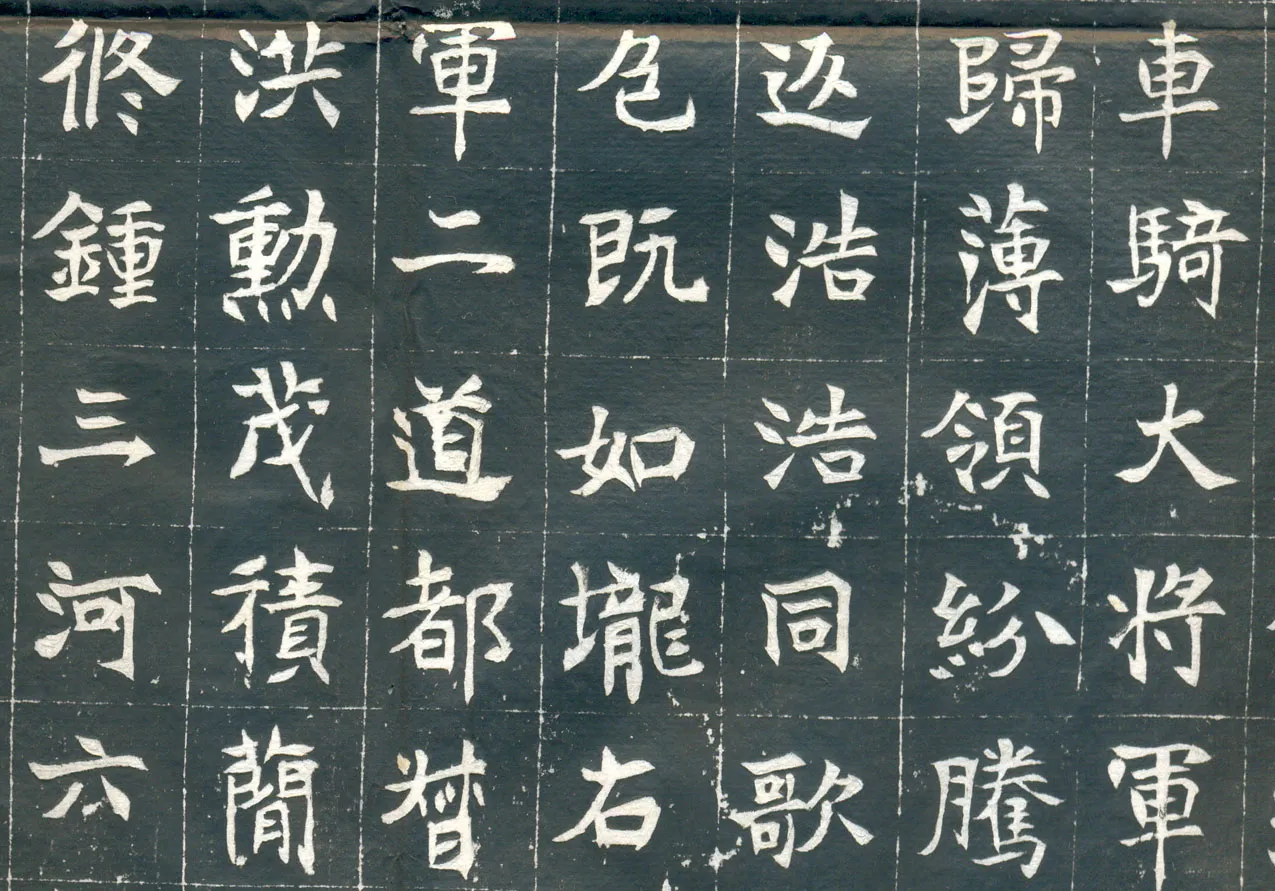 車騎大將軍
歸薄領紛騰
返浩浩同歌
色既如壠右
軍二道都督
洪勳茂積簡
修鍾三河六